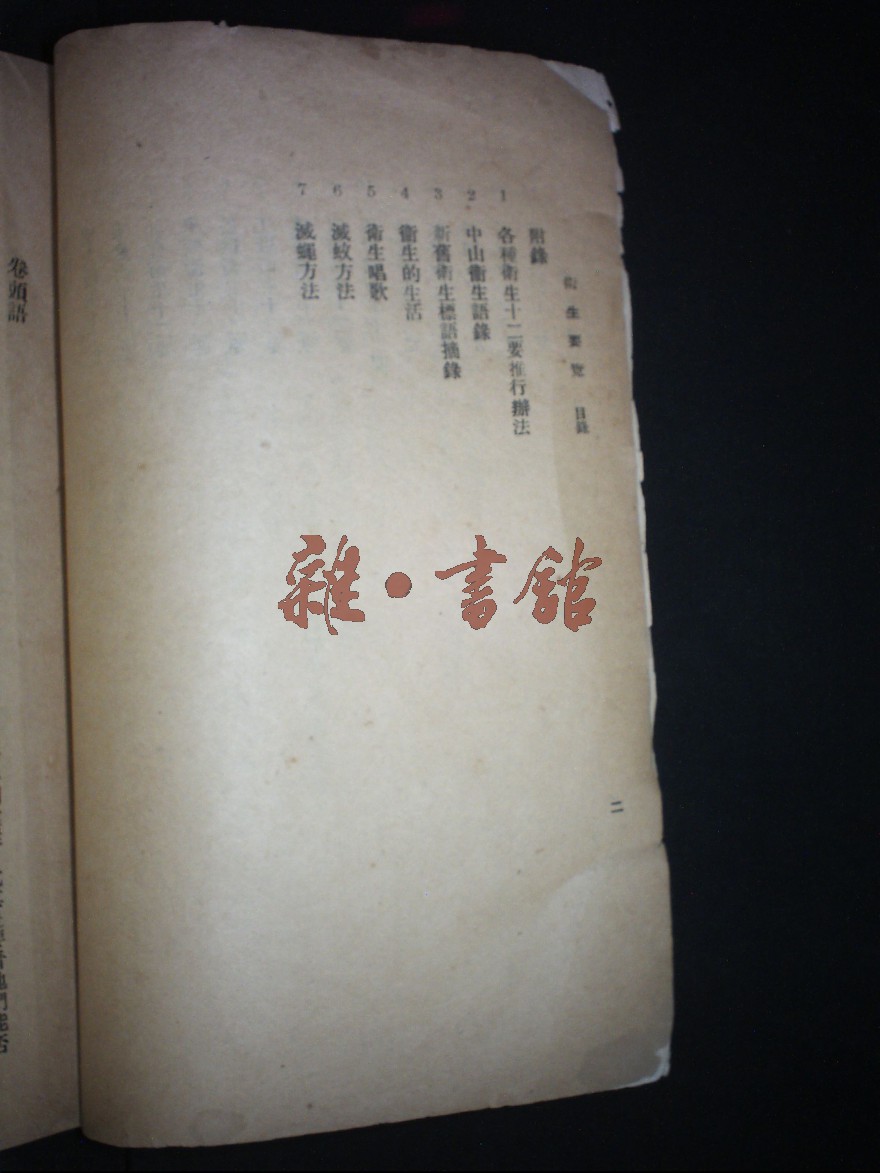 衞生要覽 目錄
附錄
1 各種衞生十二要推行辦法
2 中山衞生語錄
3 新舊衞生標語摘錄
4 衞生的生活
5 衞生唱歌
6 滅蚊方法
7 滅蠅方法
二
卷頭語
雜·書館